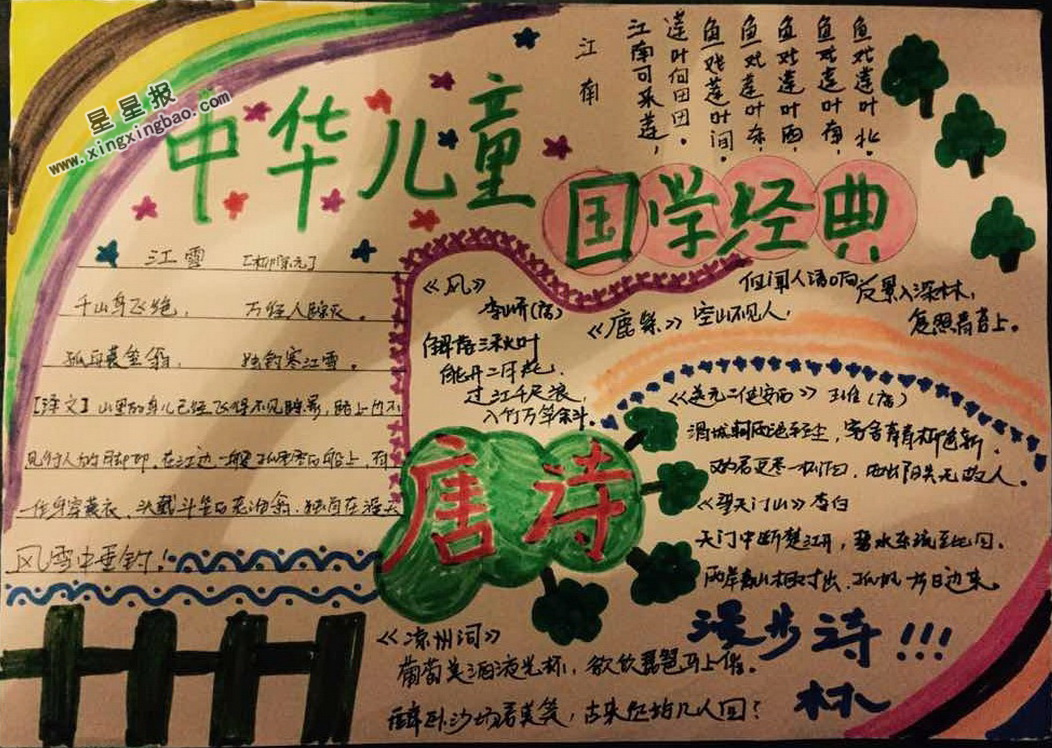 星星报
www.xingxingbao.com
中华儿童
国学经典
江南
江南可采莲，
莲叶何田田。
鱼戏莲叶间。
鱼戏莲叶东，
鱼戏莲叶西，
鱼戏莲叶南，
鱼戏莲叶北。
江雪 [柳宗元]
千山鸟飞绝， 万径人踪灭。
孤舟蓑笠翁， 独钓寒江雪。
[译文] 山里的鸟儿已经飞得不见踪影，路上也不
见行人的脚印，在江边一艘孤零零的船上，有
一位身穿蓑衣、头戴斗笠的老渔翁，独自在漫天
风雪中垂钓！
《风》
李峤(唐)
解落三秋叶
能开二月花，
过江千尺浪，
入竹万竿斜。
《鹿柴》 空山不见人，
但闻人语响
反景入深林，
复照青苔上。
《送元二使安西》 王维(唐)
渭城朝雨浥轻尘，客舍青青柳色新，
劝君更尽一杯酒，西出阳关无故人。
《望天门山》 李白
天门中断楚江开，碧水东流至此回。
两岸青山相对出，孤帆一片日边来。
唐诗
《凉州词》
葡萄美酒夜光杯，欲饮琵琶马上催。
醉卧沙场君莫笑，古来征战几人回？
漫步诗!!!
林